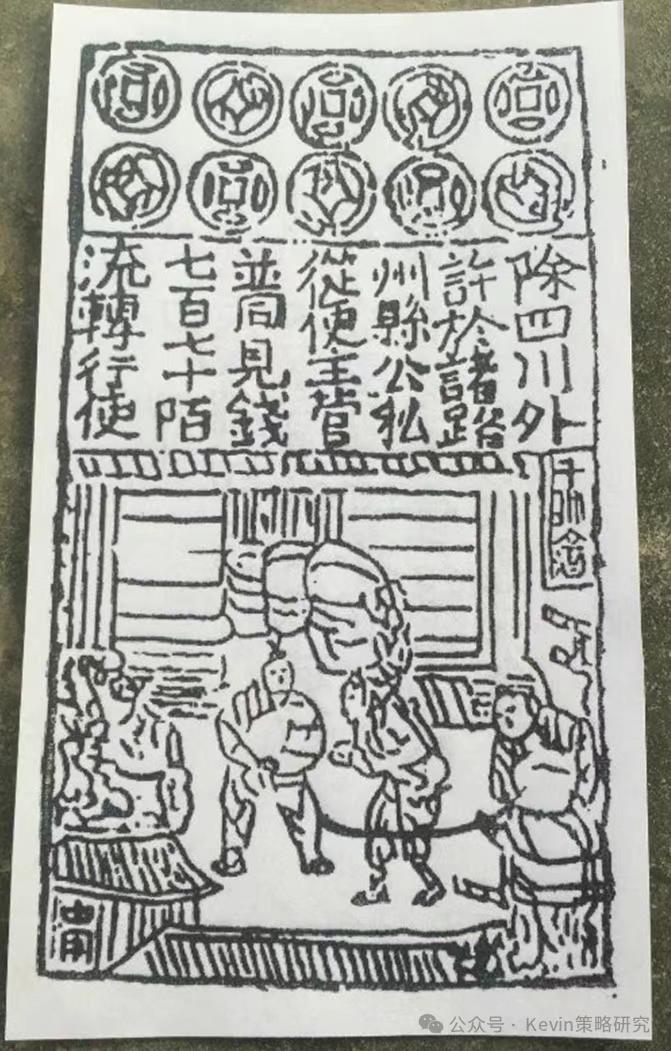 除四川外
許於諸路
州縣公私
從便主管
並同見錢
七百七十陌
流轉行使
公众号 · Kevin策略研究